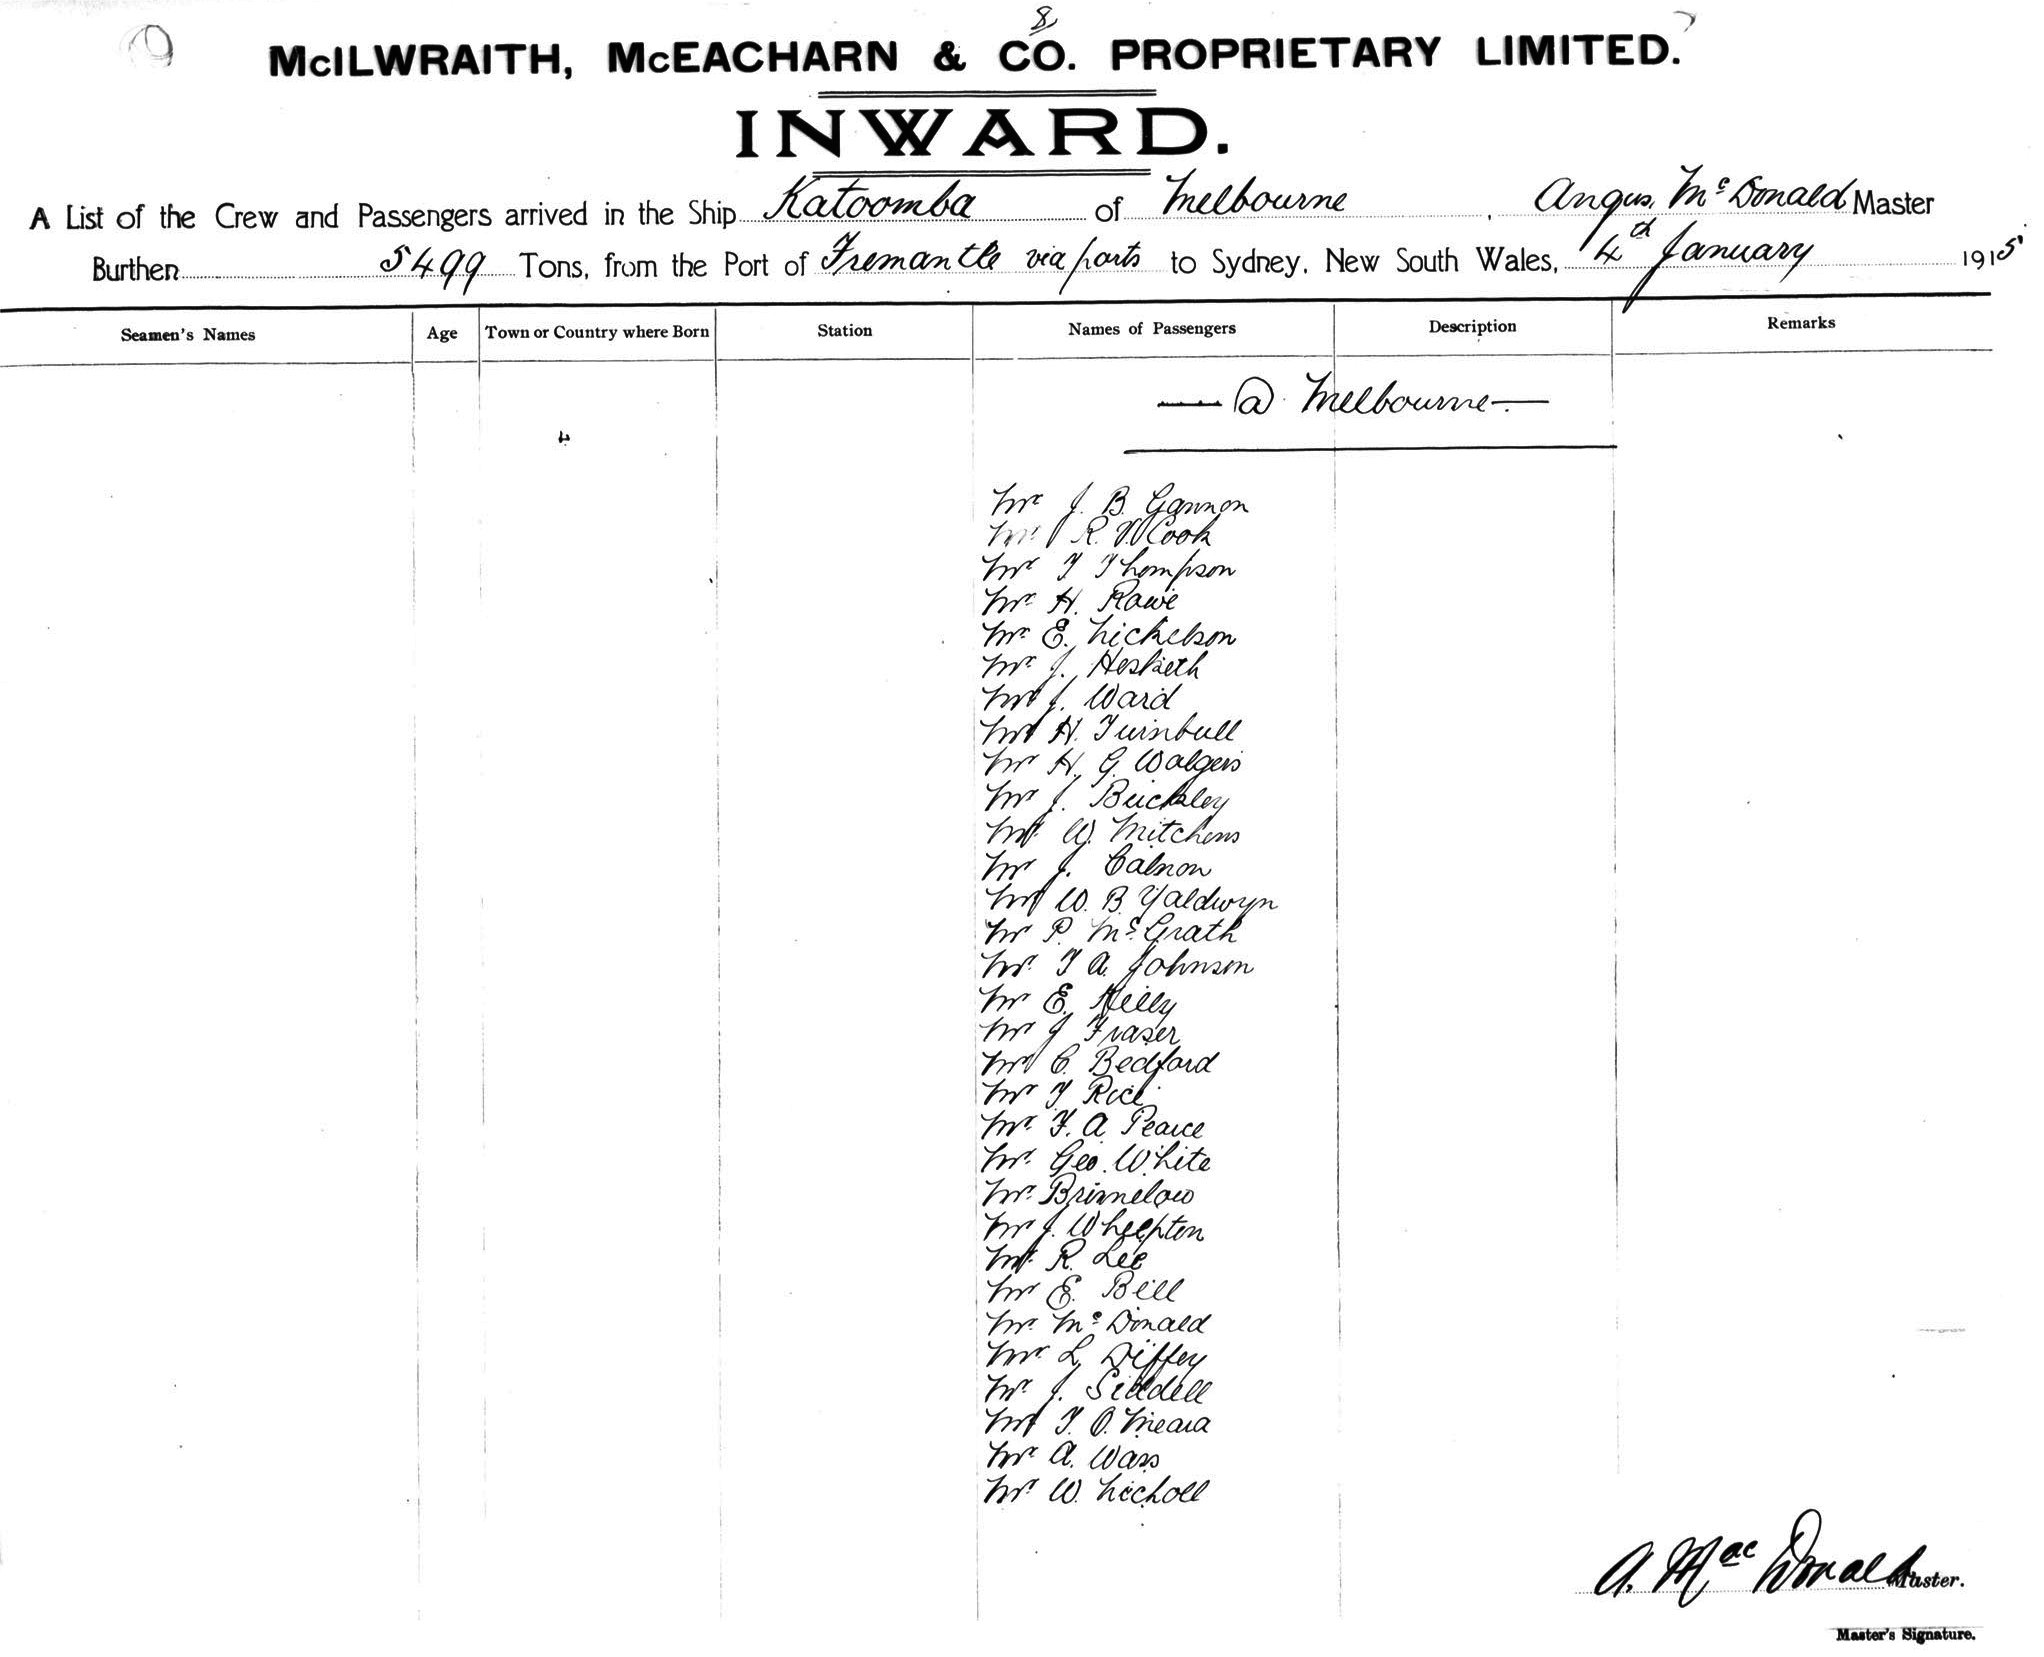 8
McILWRAITH, McEACHARN & CO. PROPRIETARY LIMITED.
INWARD.
A List of the Crew and Passengers arrived in the Ship Katoomba of Melbourne, Angus McDonald Master
Burthen 5499 Tons, from the Port of Fremantle via ports to Sydney, New South Wales, 4th January 1915
Seamen's Names Age Town or Country where Born Station Names of Passengers Description Remarks
@ Melbourne
Mr J. B. Gannon
Mr R. V. Cook
Mr T Thompson
Mr H. Rowe
Mr E. Nickelson
Mr J. Hesketh
Mr J. Ward
Mr H. Turnbull
Mr H. G. Walgers
Mr J. Buckley
Mr W. Mitchens
Mr J. Calnon
Mr W. B. Yaldwyn
Mr P. McGrath
Mr T A. Johnson
Mr E. Kelly
Mr J Fraser
Mr C. Bedford
Mr T Rice
Mr F. A Pearce
Mr Geo. White
Mr Brimelow
Mr J. Whelpton
Mr R. Lee
Mr E. Bell
Mr McDonald
Mr L. Diffey
Mr J. Siddell
Mr T. O. Meara
Mr A. Wass
Mr W. Nicholl
A. MacDonald Master.
Master's Signature.